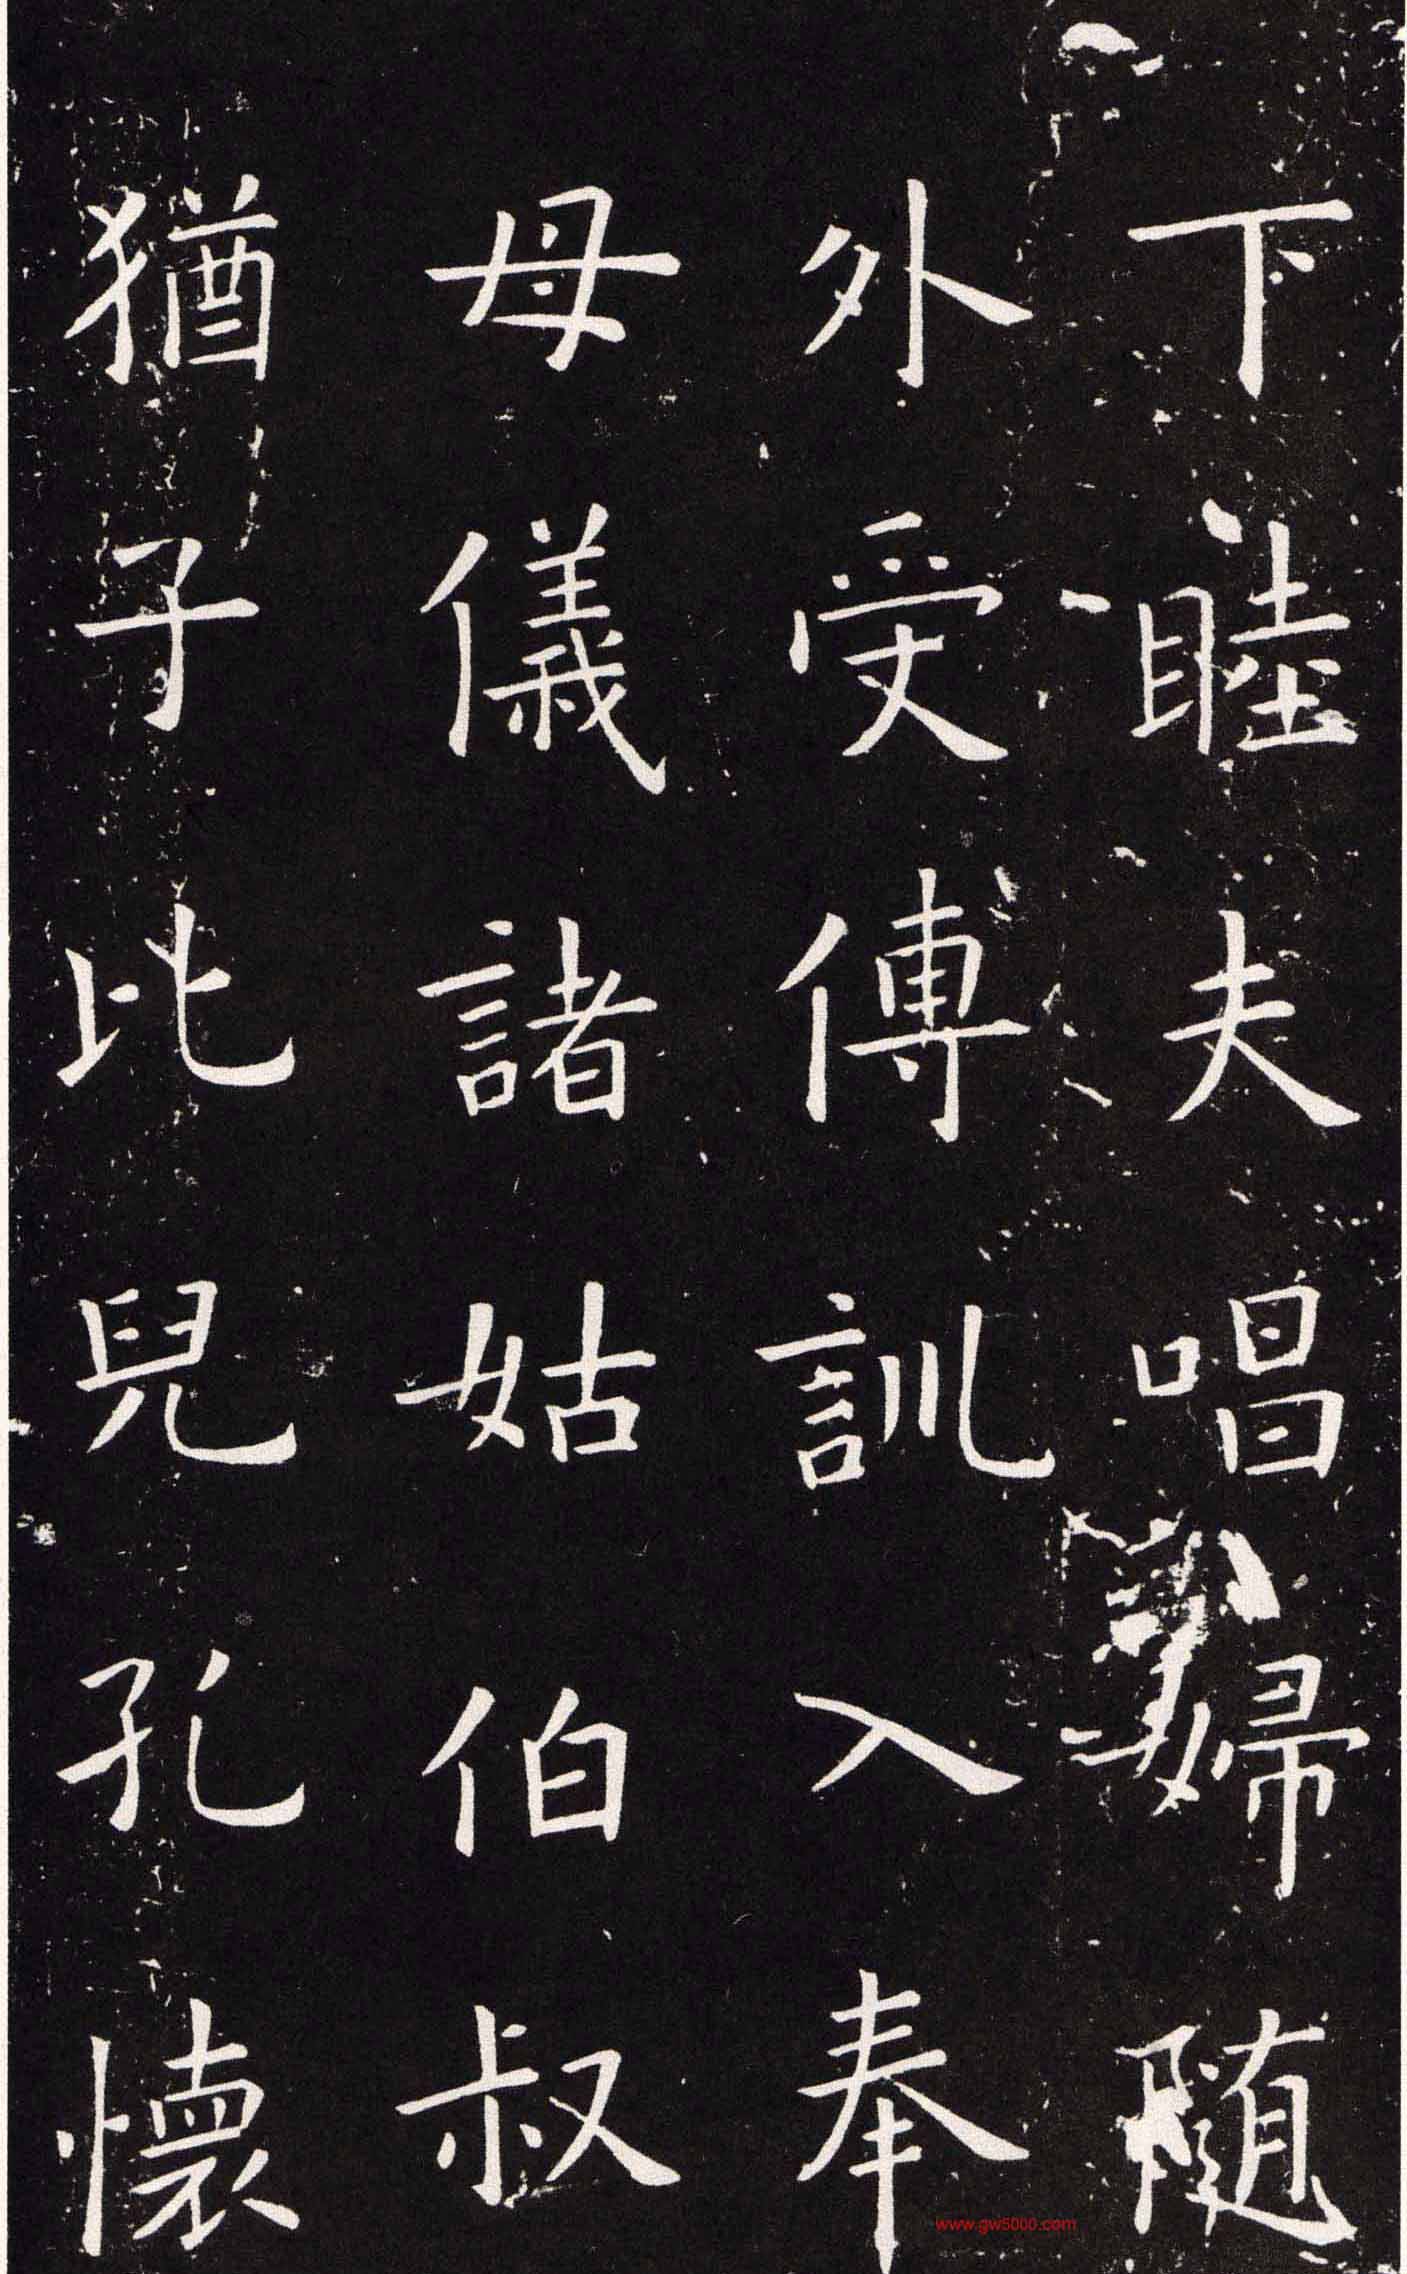 下睦夫唱婦随
外受傅訓入奉
母儀諸姑伯叔
猶子比兒孔懷
www.gw5000.com